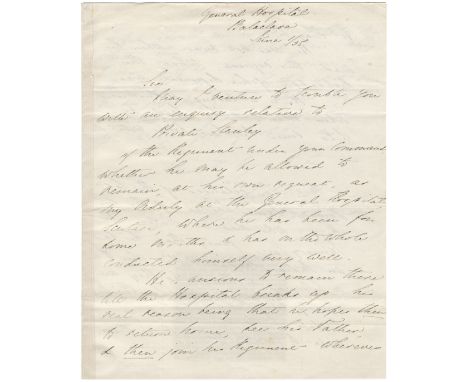 General Hospital
Balaclava
June 1/55
Sir
May I venture to trouble you
with an enquiry relative to
Private
of the Regiment under your Command
whether he may be allowed to
remain, at his own request, as
my Orderly at the General Hospital
Scutari, where he has been for
some months, & has on the whole
conducted himself very well.
He is anxious to remain there
till the Hospital breaks up his
real reason being that he hopes then
to return home, see his Father
& then join his Regiment wherever